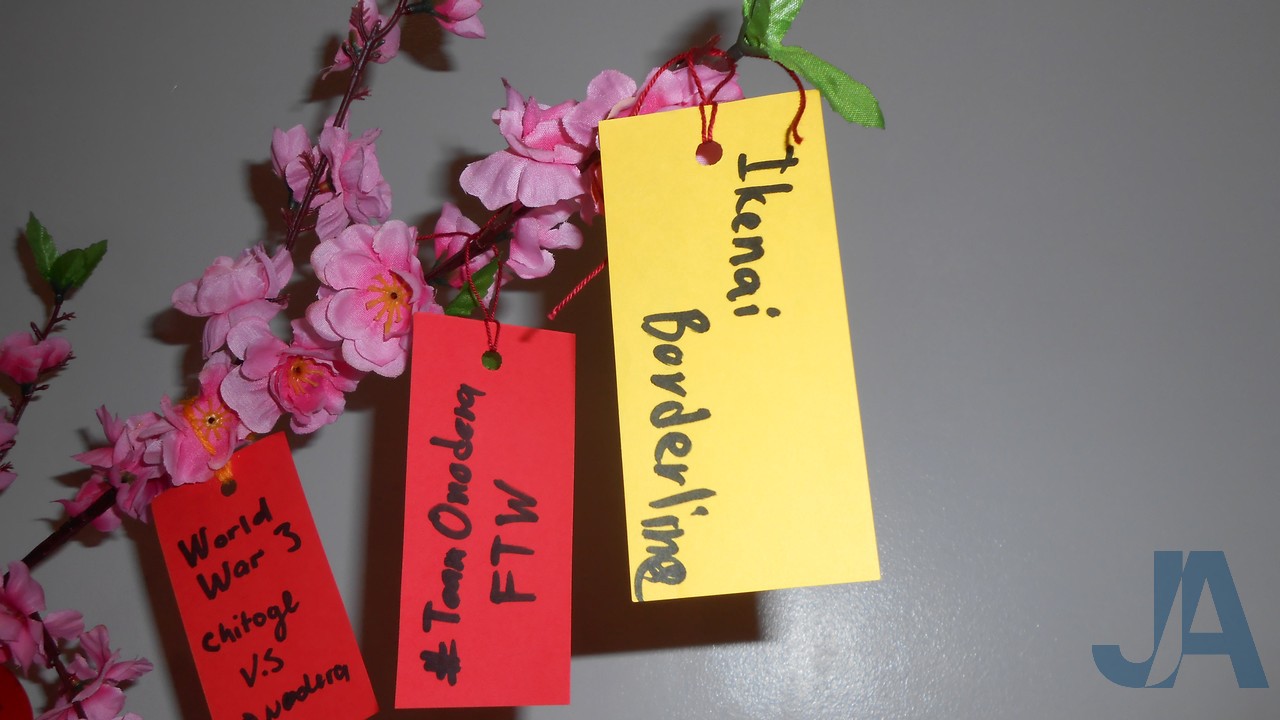 World
War 3
chitoge
V.S
onodera
#TeamOnodera
FTW
Ikenai
Borderline
JA